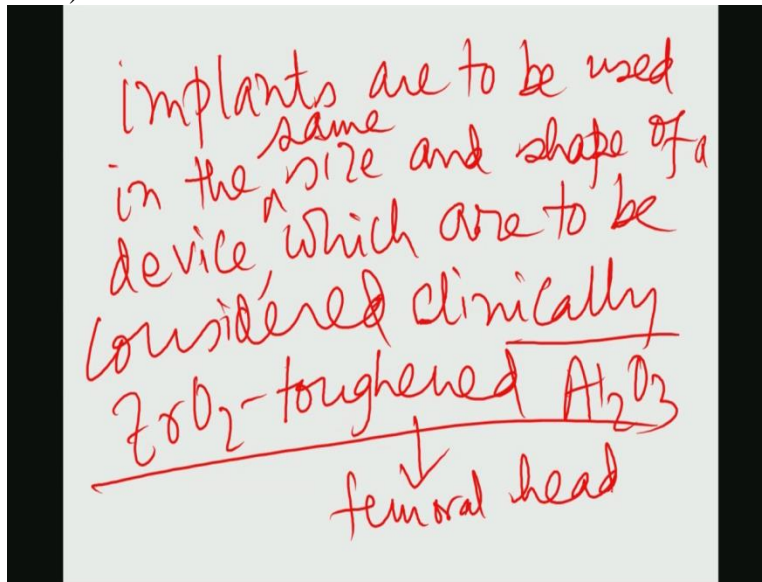 implants are to be used
in the same size and shape of a
device, which are to be
considered clinically
ZrO2-toughened Al2O3
femoral head